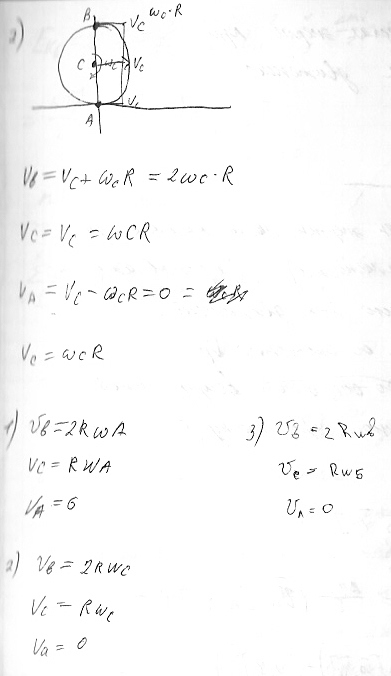 2)
B Vc ωc·R
C ωc Vc
A
VB = Vc + ωcR = 2ωc·R
Vc = Vc = ωCR
VA = Vc - ωcR = 0 =
Vc = ωcR
1) VB = 2RωA
VC = RWA
VA = 6
3) VB = 2Rωb
Vc = Rω5
VA = 0
2) VB = 2RWC
Vc = RWc
Va = 0